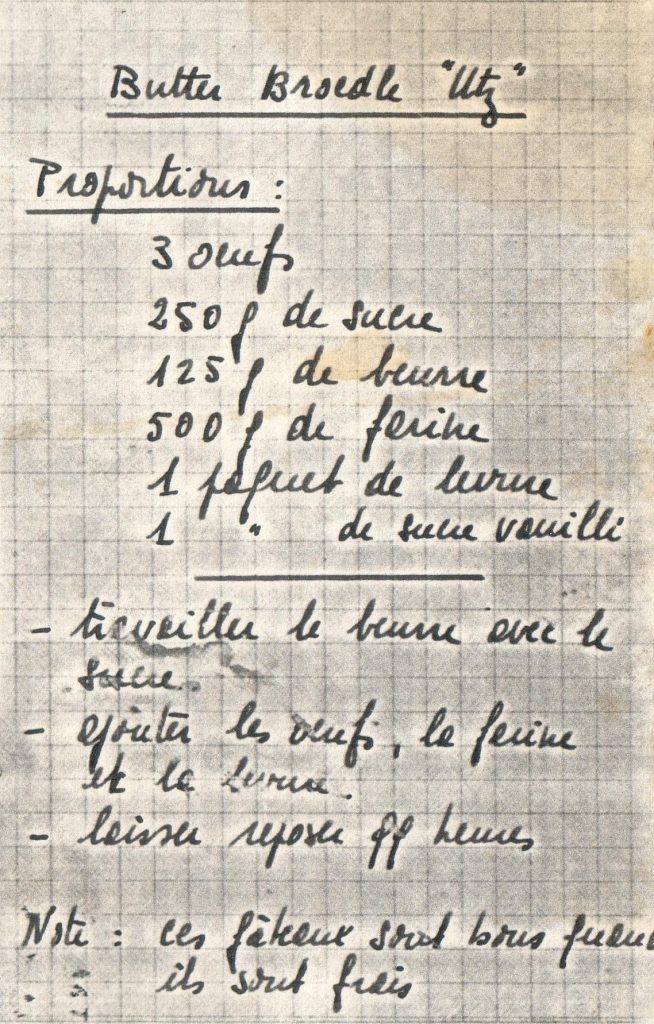 Butter Broedle "Utz"
Proportions :
3 oeufs
250 g de sucre
125 g de beurre
500 g de farine
1 paquet de levure
1 " de sucre vanillé
- travailler le beurre avec le
sucre.
- ajouter les oeufs, la farine
et la levure.
- laisser reposer qq heures
Note : ces gâteaux sont bons quand
ils sont frais